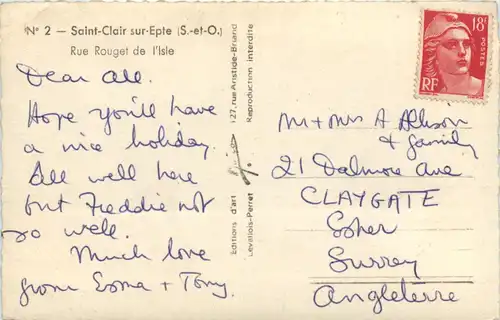 N° 2 – Saint-Clair sur-Epte (S.-et-O.)
Rue Rouget de l'Isle
Dear All.
Hope you'll have
a nice holiday.
All well here
but Freddie not
so well.
Much love
from Esma + Tony.
Editions d'art
Levallois-Perret
127, rue Aristide-Briand
Reproduction interdite
18F
POSTES
RF
Mr + Mrs A Allison
& family
21 Dalmore Ave
CLAYGATE
Esher
Surrey
Angleterre